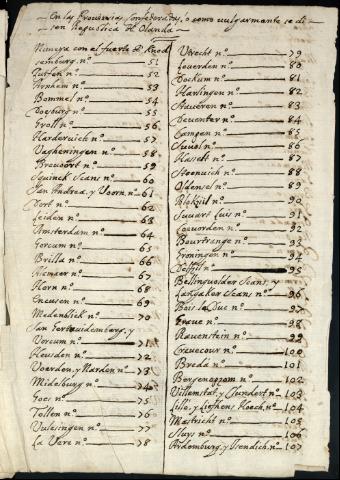 En las Provincias Confederadas, o como vulgarmante se di-
sen Republica de Olanda
Nimega con el fuerte de Knod
semburg. n.º 51
Zutfen n.º 52
Arnhem n.º 53
Bommel n.º 54
Doesburg n.º 55
Grolle n.º 56
Harderwich n.º 57
Vagheningen n.º 58
Brevoort n.º 59
Squinck Scans n.º 60
San Andrea, y Voorn n.º 61
Dort n.º 62
Leiden n.º 63
Amsterdam n.º 64
Gorcum n.º 65
Brilla n.º 66
Alcmaer n.º 67
Horn n.º 68
Encusen n.º 69
Medenblick n.º 70
San Gertruidemberg, y
Vorcum n.º 71
Heusden n.º 72
Voerden, y Narden n.º 73
Middelburg n.º 74
Goes n.º 75
Tollen n.º 76
Vulesingen n.º 77
La Vere n.º 78
Utrecht n.º 79
Leverden n.º 80
Dockum n.º 81
Harlingen n.º 82
Staveren n.º 83
Deventer n.º 84
Campen n.º 85
Suvol n.º 86
Hasselt n.º 87
Steenvich n.º 88
Oldensel n.º 89
Blokzil n.º 90
Suvart Luis n.º 91
Coevorden n.º 92
Bourtrange n.º 93
Groningen n.º 94
Delfzil n.º 95
Bellinguolder Scans, y
Langaker Scans n.º 96
Bois le Duc n.º 97
Grave n.º 98
Ravenstein n.º 99
Crevecour n.º 100
Breda n.º 101
Bergenopzom n.º 102
Villemstat, y Clundert n.º 103
Lillo, y Liefhens Hoech n.º 104
Mastricht n.º 105
Sluys n.º 106
Ardomburg, y Isendich n.º 107